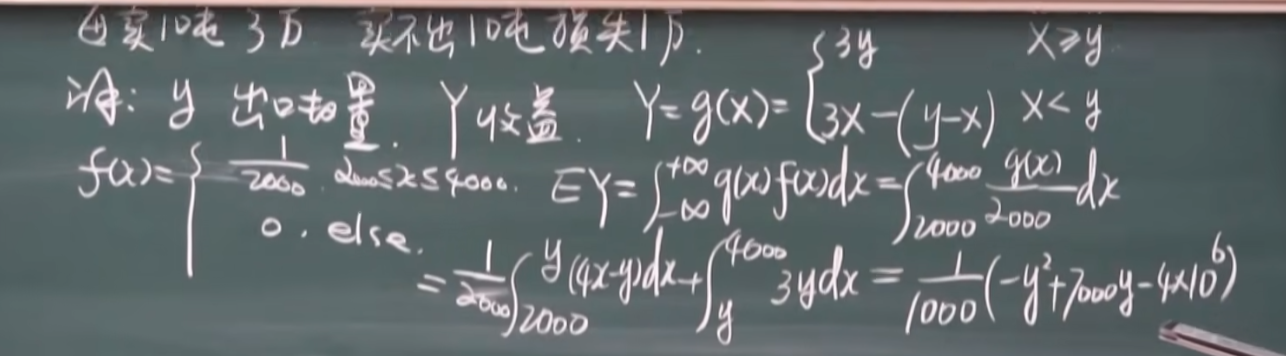 ①卖10吨3万 卖不出10吨损失1万.
设: y 出口数量. Y 收益. Y=g(x)={3y x≥y 3x-(y-x) x<y
f(x)={1/2000. 2000≤x≤4000. 0. else. EY=∫_{-∞}^{+∞}g(x)f(x)dx=∫_{2000}^{4000} g(x)/2000 dx
=1/2000∫_{2000}^{y}(4x-y)dx+∫_{y}^{4000}3ydx=1/1000(-y²+7000y-4×10⁶)